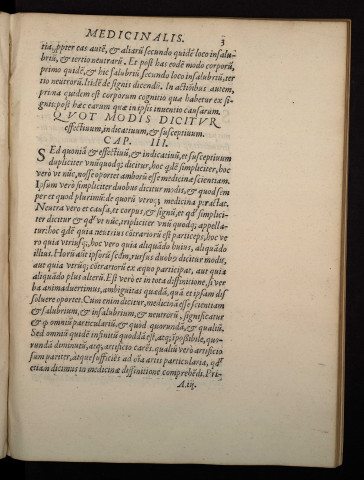 MEDICINALIS. 3
tia, ppter eas autē, & aliarū secundo quidē loco insalu-
briū, & tertio neutrarū. Et post has eodē modo corporū,
primo quidē, & hic salubriū secundo loco insalubriū, ter
tio neutrorū. Itidē de signis dicendū. In actibus autem,
prima quidem est corporum cognitio quæ habetur ex si-
gnis: post hæc earum quæ in ipsis inuentio causarum.
QVOT MODIS DICITVR
effectiuum, indicatiuum, & susceptiuum.
CAP. III.
SEd quoniā & effectiuū, & indicatiuū, et susceptiuum
dupliciter vnūquodq; dicitur, hoc qdē simpliciter, hoc
verò vt nūc, nosse oportet amborū esse medicinæ sciētiam.
Ipsum verò simpliciter duobus dicitur modis, et quod sem
per et quod plurimū: de quorū vero; medicina ptractat.
Neutra vero et causa, et corpus, & signū, et qd' simplici-
ter dicitur & qd' vt nūc, tripliciter vnū quodq; appella-
tur: hoc qdē quia neutrius cōtrariorū est particeps, hoc ve
ro quia vtriusq;, hoc vero quia aliquādo huius, aliquādo
illius. Horū aut ipsorū scdm, rursus duobꝰ dicitur modis,
aut quia verūq; cōtrariorū ex æquo participat, aut quia
aliquādo plus alteri. Est verò et in tota diffinitione, si ver
ba animaduertimus, ambiguitas quædā, quā et ipsam dis
soluere oportet. Cum enim dicitur, medicinā esse scientiam
& salubrium, & insalubrium, & neutrorū, significatur
& q omniū particulariū, & quid quorundā, & qualiū.
Sed omniū quidē infinitū quoddā est, atq; īpossibile, quo-
rundā diminutū, atq; artificio carēs. qualiū verò artificio
sum pariter, atque sufficiēs ad oīa artis particularia, qd'
etiam dicimus in medicinæ diffinitione comprehēdi. Pri-
A.iij.